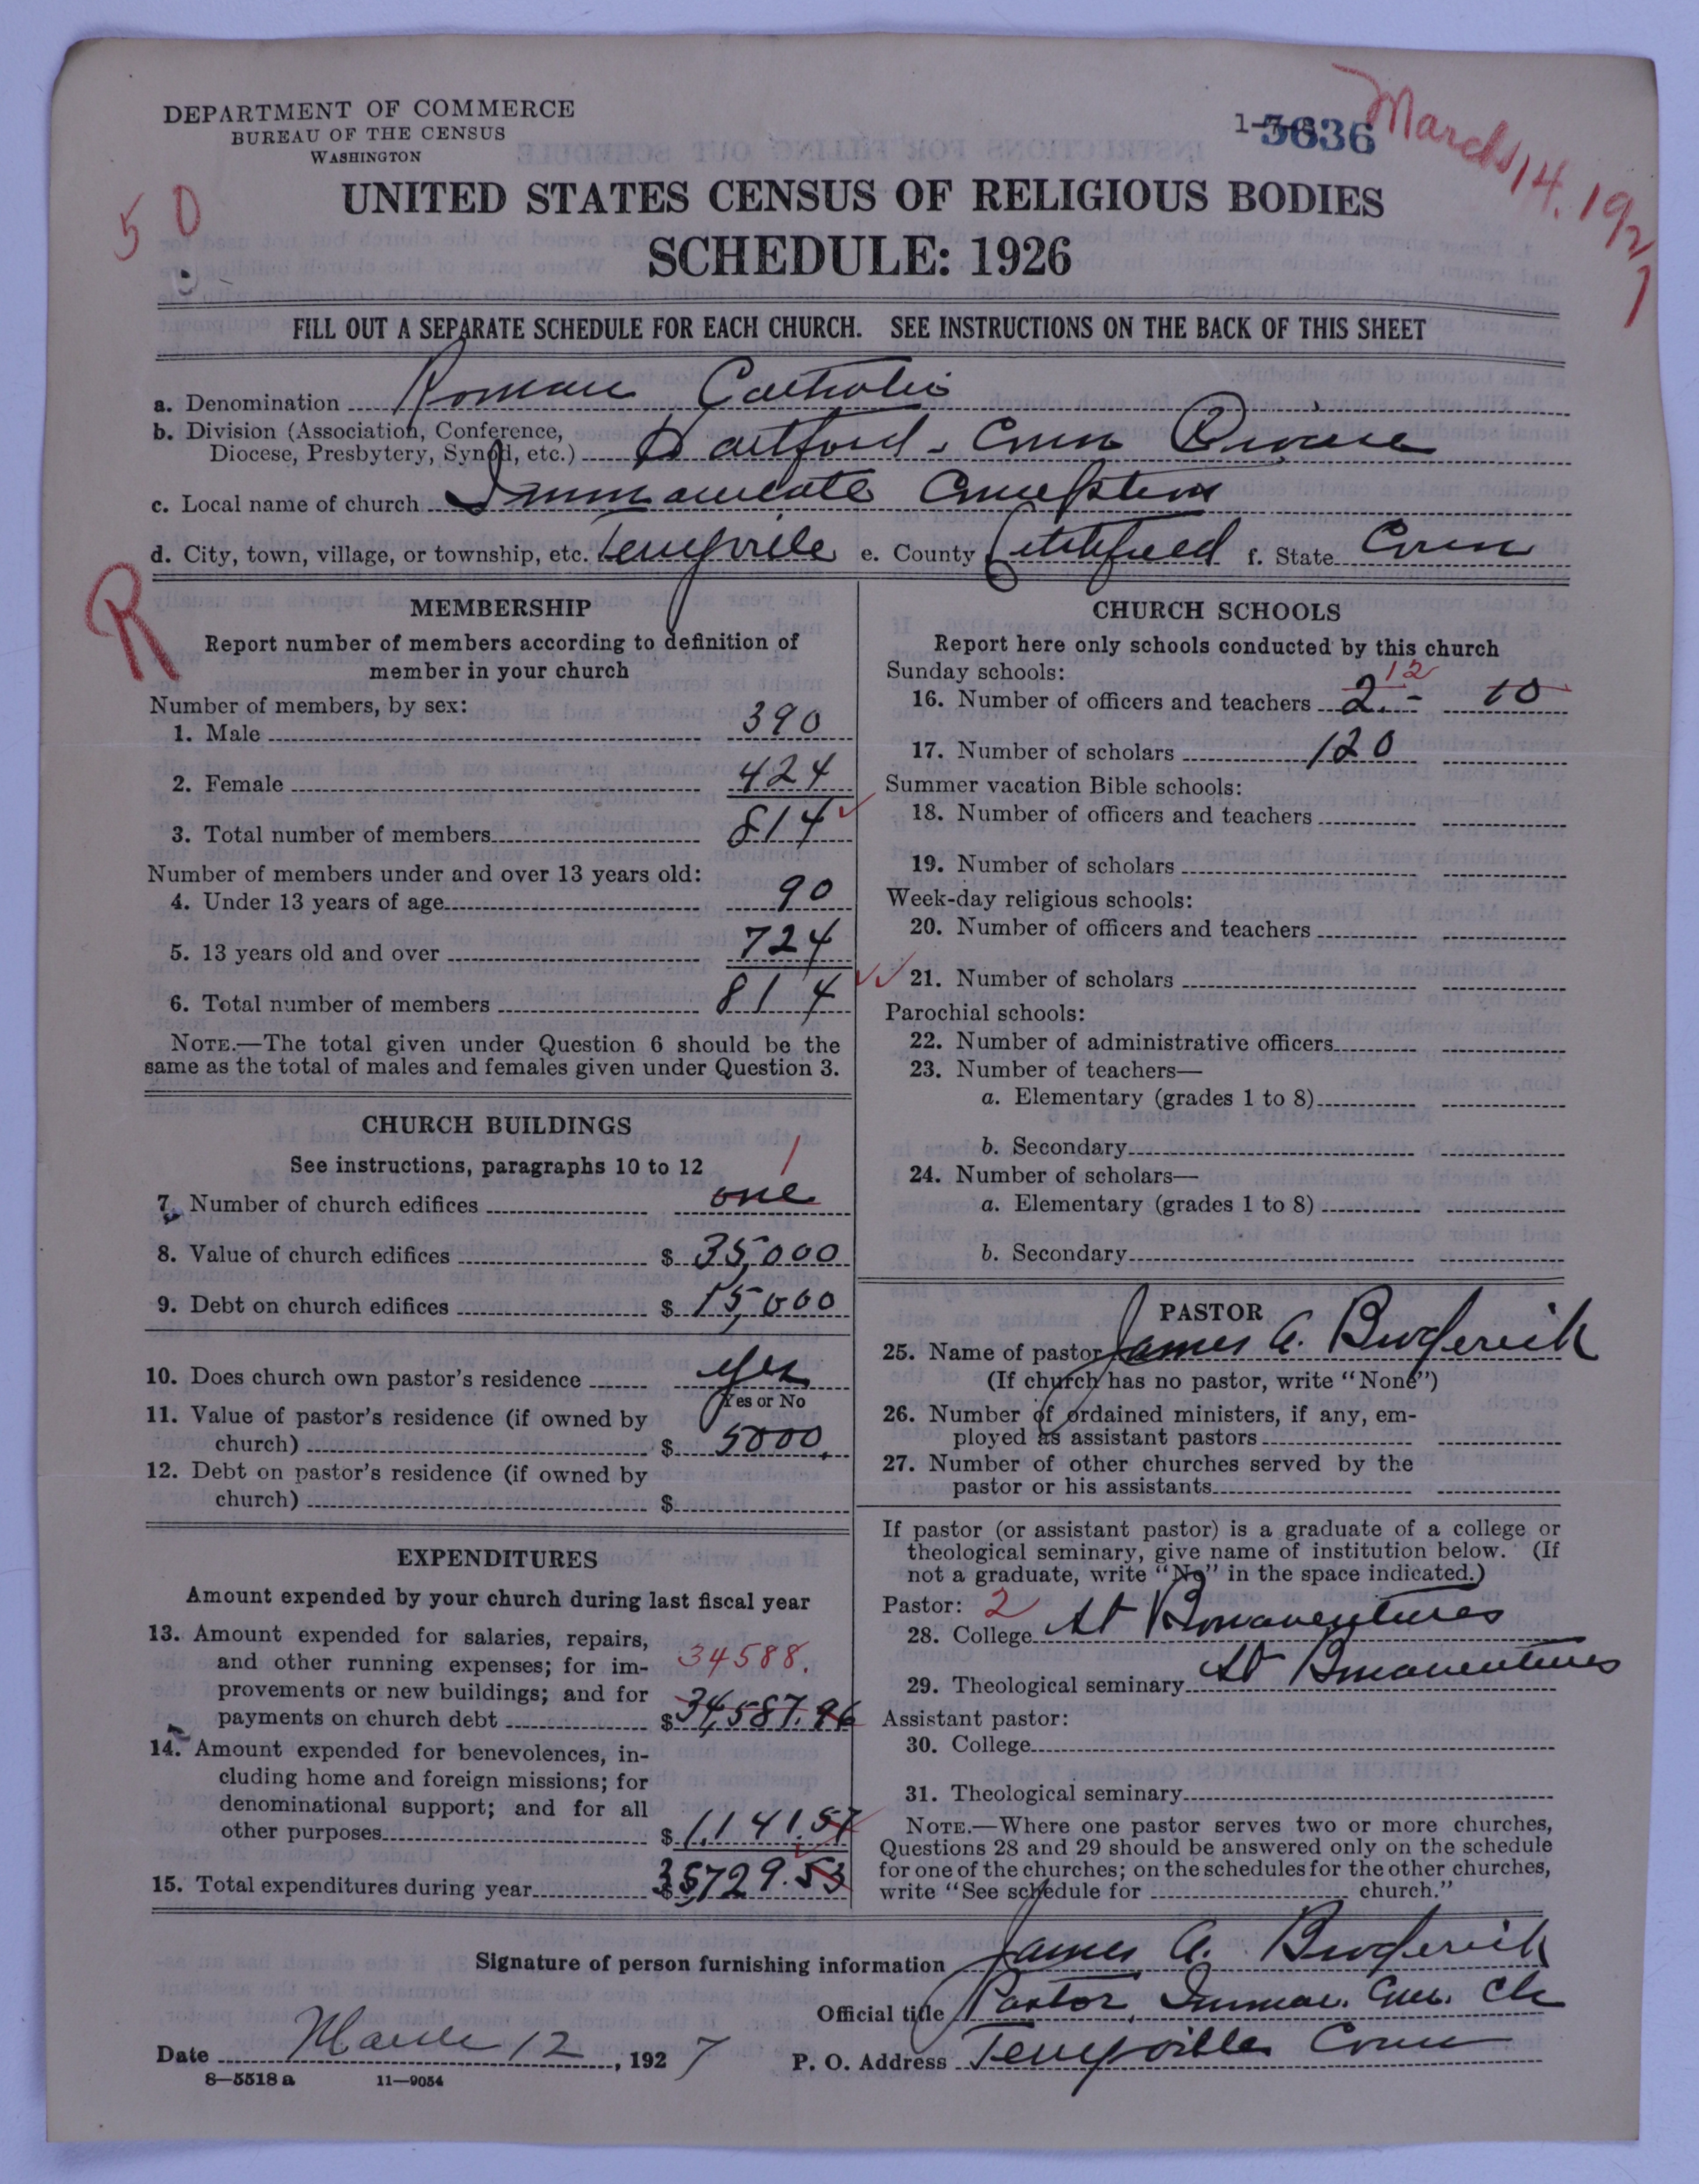 DEPARTMENT OF COMMERCE
BUREAU OF THE CENSUS
WASHINGTON
5636
March 14, 1927
50
UNITED STATES CENSUS OF RELIGIOUS BODIES
SCHEDULE: 1926
FILL OUT A SEPARATE SCHEDULE FOR EACH CHURCH. SEE INSTRUCTIONS ON THE BACK OF THIS SHEET
a. Denomination Roman Catholic
b. Division (Association, Conference,
Diocese, Presbytery, Synod, etc.) Hartford - Conn Diocese
c. Local name of church Immaculate Conception
d. City, town, village, or township, etc. Terryville e. County Litchfield f. State Conn
R
MEMBERSHIP
Report number of members according to definition of
member in your church
Number of members, by sex:
1. Male 390
2. Female 424
3. Total number of members 814
Number of members under and over 13 years old:
4. Under 13 years of age 90
5. 13 years old and over 724
6. Total number of members 814
NOTE.—The total given under Question 6 should be the
same as the total of males and females given under Question 3.
CHURCH BUILDINGS
See instructions, paragraphs 10 to 12
1
7. Number of church edifices one
8. Value of church edifices $ 35,000
9. Debt on church edifices $ 15,000
10. Does church own pastor's residence yes
Yes or No
11. Value of pastor's residence (if owned by
church) $ 5000.
12. Debt on pastor's residence (if owned by
church) $
EXPENDITURES
Amount expended by your church during last fiscal year
13. Amount expended for salaries, repairs,
and other running expenses; for im- 34588.
provements or new buildings; and for
payments on church debt $ 34,587.96
14. Amount expended for benevolences, in-
cluding home and foreign missions; for
denominational support; and for all
other purposes $ 1,141.57
15. Total expenditures during year $ 35,729.53
CHURCH SCHOOLS
Report here only schools conducted by this church
Sunday schools:
12
16. Number of officers and teachers 2.- 10
17. Number of scholars 120
Summer vacation Bible schools:
18. Number of officers and teachers
19. Number of scholars
Week-day religious schools:
20. Number of officers and teachers
21. Number of scholars
Parochial schools:
22. Number of administrative officers
23. Number of teachers—
a. Elementary (grades 1 to 8)
b. Secondary
24. Number of scholars—
a. Elementary (grades 1 to 8)
b. Secondary
PASTOR
25. Name of pastor James A. Broderick
(If church has no pastor, write "None")
26. Number of ordained ministers, if any, em-
ployed as assistant pastors
27. Number of other churches served by the
pastor or his assistants
If pastor (or assistant pastor) is a graduate of a college or
theological seminary, give name of institution below. (If
not a graduate, write "No" in the space indicated.)
Pastor: 2
28. College St Bonaventures
29. Theological seminary St Bonaventures
Assistant pastor:
30. College
31. Theological seminary
NOTE.—Where one pastor serves two or more churches,
Questions 28 and 29 should be answered only on the schedule
for one of the churches; on the schedules for the other churches,
write "See schedule for church."
Signature of person furnishing information James A. Broderick
Official title Pastor Immac. Con. Ch
Date March 12, 1927 P. O. Address Terryville Conn
8—5518 a 11—9054